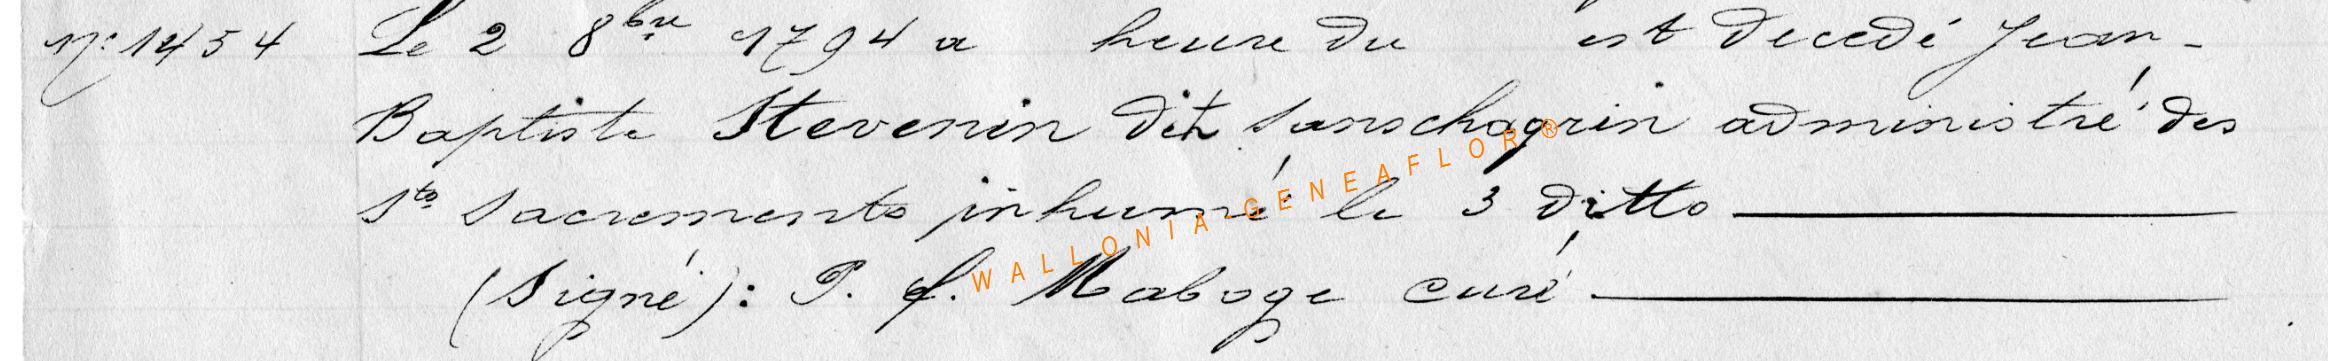 N° 1454 Le 2 8bre 1794 a heure du est decedé Jean-
Baptiste Stevenin dit sanschagrin administré des
Sts Sacrements inhumé le 3 ditto
(Signé): P. f. Maboge curé
WALLONIA GENEAFLOR®